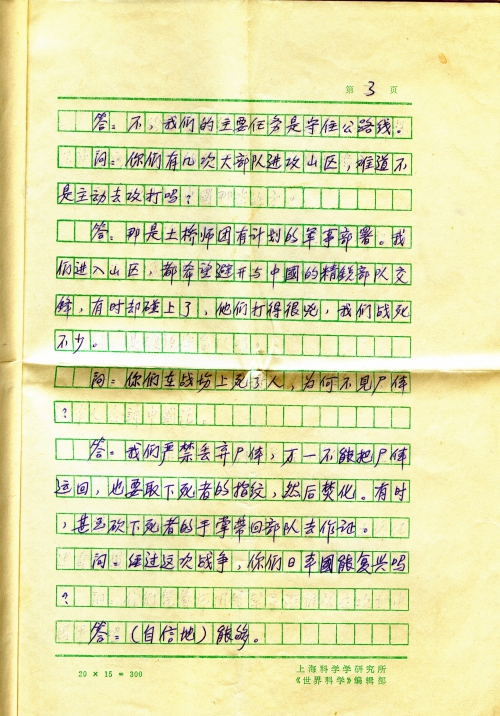 第 3 页
答：不，我们的主要任务是守住公路线。
问：你们有几次大部队进攻山区，难道不
是主动去攻打吗？
答：那是土桥师团有计划的军事部署。我
们进入山区，都希望避开与中國的精锐部队交
锋，有时却碰上了，他们打得很凶，我们战死
不少。
问：你们在战场上死了人，为何不见尸体
？
答：我们严禁丢弃尸体，万一不能把尸体
运回，也要取下死者的指纹，然后焚化。有时
，甚至砍下死者的手掌带回部队去作证。
问：经过这次战争，你们日本國能复兴吗
？
答：（自信地）能够。
20 × 15 = 300
上海科学学研究所
《世界科学》编辑部